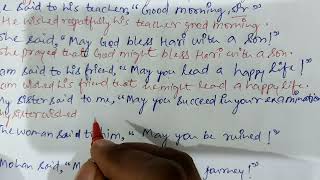 e said to his teacher, "Good morning, Sir"
He wished respectfully his teacher good morning.
She said, "May God bless Hari with a son!"
She prayed that God might bless Hari with a son.
am said to his friend, "May you lead a happy life!"
am wished his friend that he might lead a happy life.
My sister said to me, "May you succeed in your examination
My sister wished
The woman said to him, "May you be ruined!"
Mohan said, "M journey!"